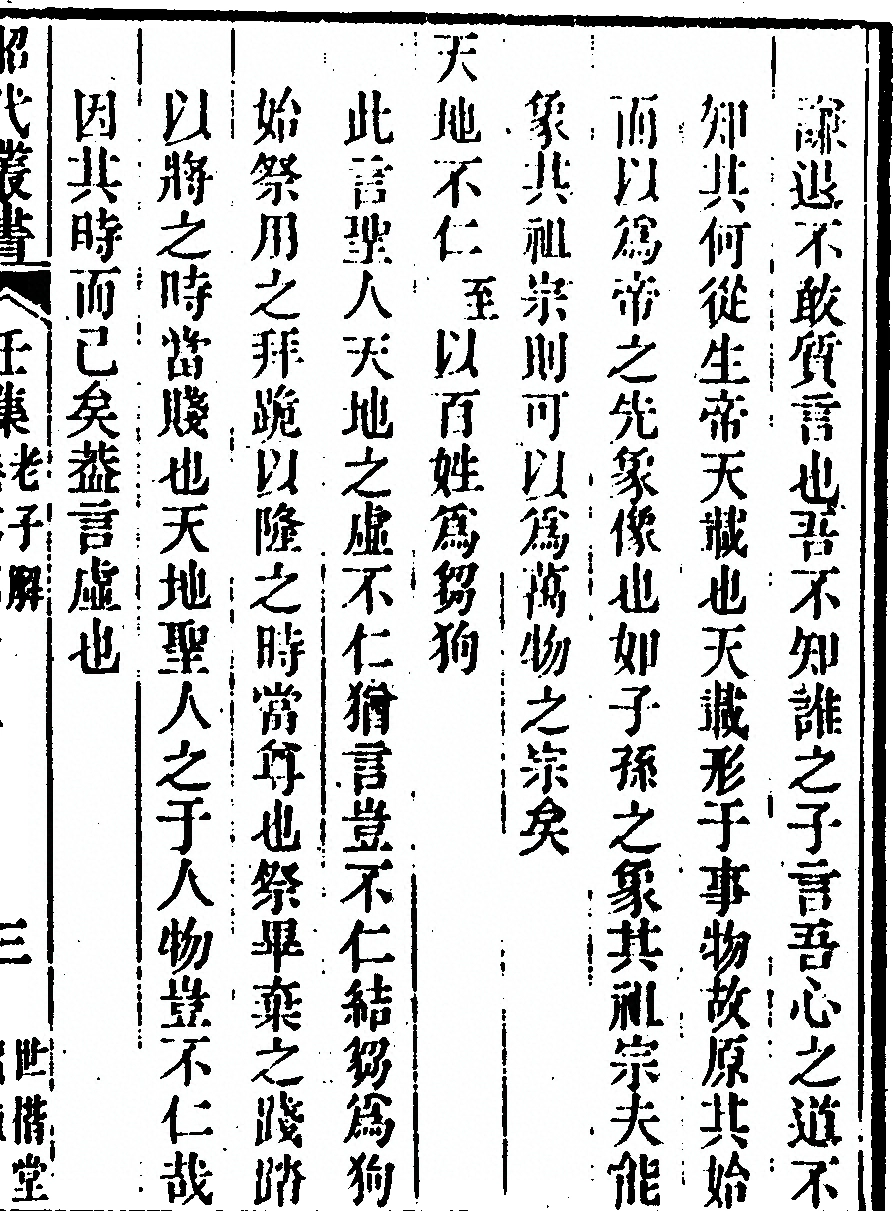 謙退不敢質言也吾不知誰之子言吾心之道不
知其何從生帝天載也天載形于事物故原其始
而以爲帝之先象像也如子孫之象其祖宗夫能
象其祖宗則可以爲萬物之宗矣
天地不仁至以百姓爲芻狗
此言聖人天地之虛不仁猶言豈不仁結芻爲狗
始祭用之拜跪以隆之時當尊也祭畢棄之踐踏
以將之時當賤也天地聖人之于人物豈不仁哉
因其時而已矣葢言虛也
昭代叢書 壬集 老子解 三 世楷堂